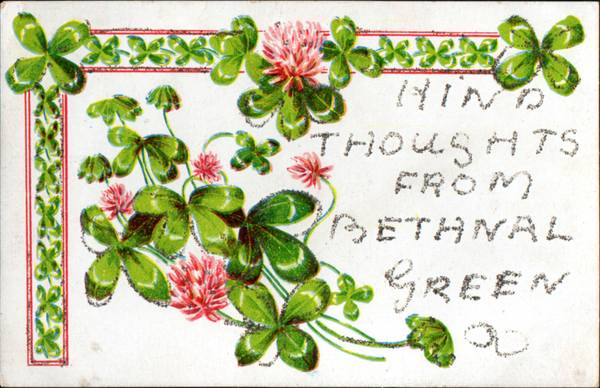 HIND
THOUGHTS
FROM
BETHNAL
GREEN